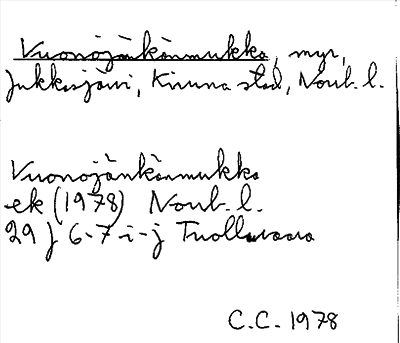 Vuonojänkänmukka, myr,
Jukkasjärvi, Kiruna stad, Norrb. l.
Vuonojänkänmukka
ek (1978) Norrb. l.
29 J 6-7-i-j Tuolluvaara
C.C. 1978